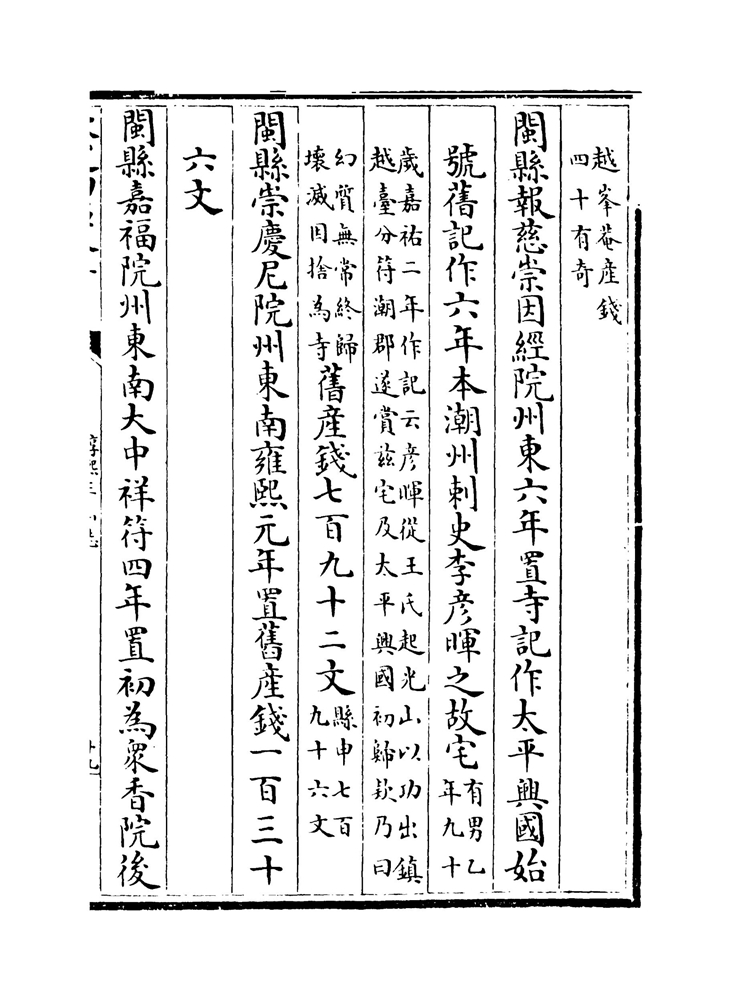 越峯菴產錢
四十有奇
閩縣報慈崇因經院州東六年置寺記作太平興國始
號舊記作六年本潮州刺史李彦暉之故宅
有男乙
年九十
歲嘉祐二年作記云彦暉從王氏起光山以功出鎮
越臺分符潮郡遂賞兹宅及太平興國初歸欵乃曰
幻質無常終歸
壞滅因捨為寺
舊產錢七百九十二文
縣申七百
九十六文
閩縣崇慶尼院州東南雍熙元年置舊產錢一百三十
六文
閩縣嘉福院州東南大中祥符四年置初為衆香院後